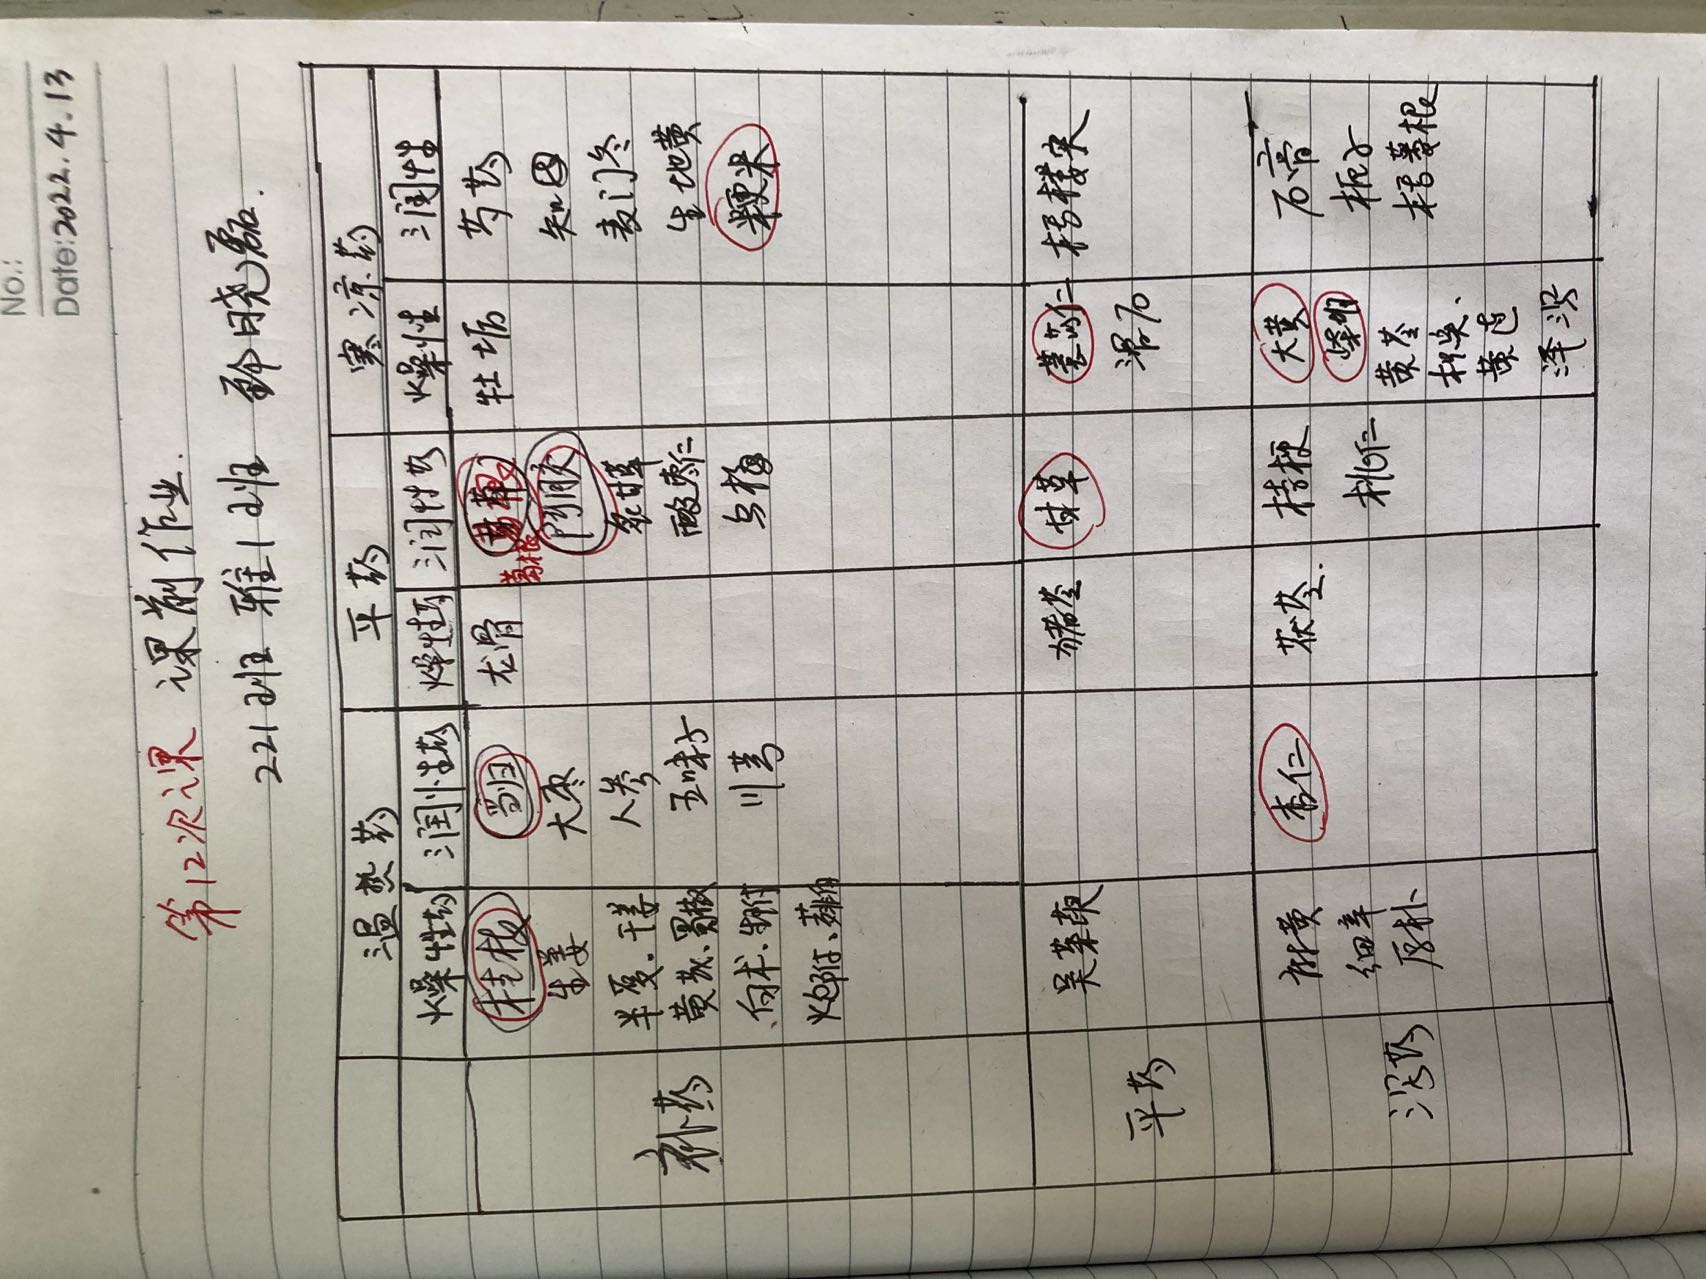 No.:
Date:2022.4.13
第12次课 课前作业.
221班 雅1班
温热药 平药 寒凉药
燥性药 润性药 燥性药 润性药 燥性 润性
补药
桂枝
生姜
半夏、干姜
黄芪、蜀椒
白术、生附
炮附、薤白
当归
大枣
人参
五味子
川芎
龙骨
葛根
葛根
阿胶
炙甘草
酸枣仁
乌梅
牡蛎
芍药
知母
麦门冬
生地黄
粳米
平药
吴茱萸
猪苓
甘草
薏苡仁
滑石
栝楼实
泻药
麻黄
细辛
厚朴
杏仁
茯苓.
桔梗
桃仁
大黄
芒硝
黄芩
枳实、
黄芭
泽泻
石膏
栀子
栝蒌根